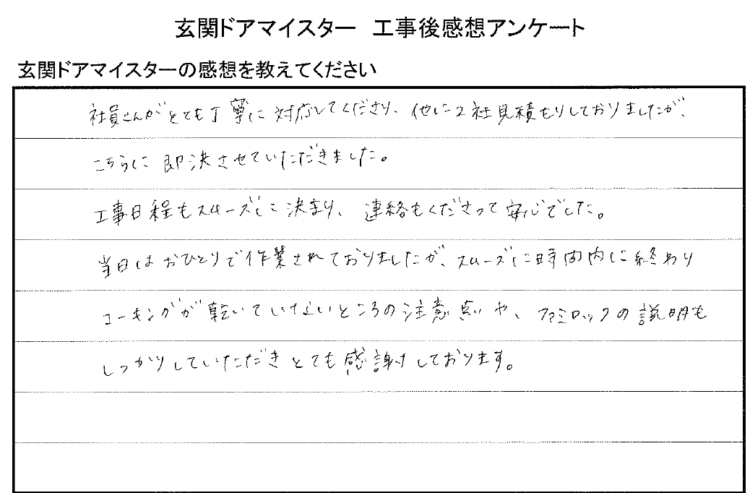 玄関ドアマイスター 工事後感想アンケート
玄関ドアマイスターの感想を教えてください
社員さんがとても丁寧に対応してくださり、他に2社見積もりしておりましたが、
こちらに即決させていただきました。
工事日程もスムーズに決まり、連絡もくださって安心でした。
当日はおひとりで作業されておりましたが、スムーズに時間内に終わり
コーキングが乾いていないところの注意点や、ファミロックの説明も
しっかりしていただきとても感謝しております。